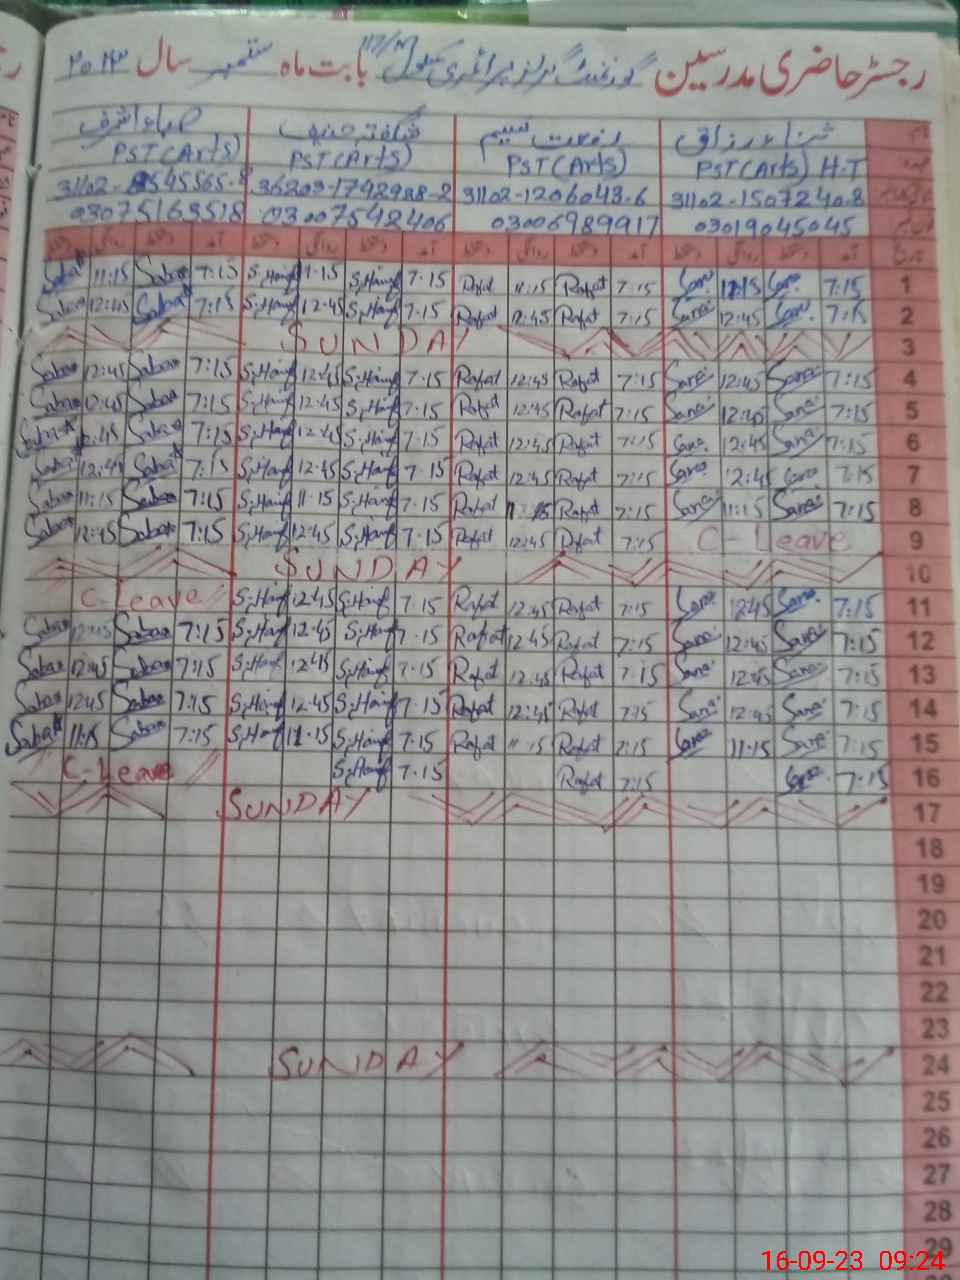 رجسٹر حاضری مدرسین گورنمنٹ گرلز پرائمری سکول بابت ماہ ستمبر سال ۲۰۲۳
ثناء رزاق رفعت نسیم شگفتہ حنیف صباء اشرف
PST(Arts) H-T PST(Arts) PST(Arts) PST(Arts)
31102-1507240-8 31102-1206043-6 36203-1742988-2
03019045045 03006989917 03007542406 03075163518
Saba 11:15 Saba 7:15 S.Hanif 11-15 S.Hanif 7-15 Rafat 11:15 Rafat 7:15 Sana 11:15 Sana 7:15 1
Saba 12:45 Saba 7:15 S.Hanif 12:45 S.Hanif 7-15 Rafat 12:45 Rafat 7:15 Sana 12:45 Sana 7:15 2
SUNDAY 3
Sabaa 12:45 Sabaa 7:15 S.Hanif 12:45 S.Hanif 7-15 Rafat 12:45 Rafat 7:15 Sana 12:45 Sana 7:15 4
Sabaa 12:45 Sabaa 7:15 S.Hanif 12:45 S.Hanif 7-15 Rafat 12:45 Rafat 7:15 Sana 12:45 Sana 7:15 5
Sabaa 12:45 Sabaa 7:15 S.Hanif 12:45 S.Hanif 7-15 Rafat 12:45 Rafat 7:15 Sana 12:45 Sana 7:15 6
Sabaa 12:45 Sabaa 7:15 S.Hanif 12:45 S.Hanif 7-15 Rafat 12:45 Rafat 7:15 Sana 12:45 Sana 7:15 7
Sabaa 11:15 Sabaa 7:15 S.Hanif 11-15 S.Hanif 7-15 Rafat 11:15 Rafat 7:15 Sana 11:15 Sana 7:15 8
Sabaa 12:45 Sabaa 7:15 S.Hanif 12:45 S.Hanif 7-15 Rafat 12:45 Rafat 7:15 C-Leave 9
SUNDAY 10
C-Leave S.Hanif 12:45 S.Hanif 7-15 Rafat 12:45 Rafat 7:15 Sana 12:45 Sana 7:15 11
Sabaa 12:45 Sabaa 7:15 S.Hanif 12:45 S.Hanif 7-15 Rafat 12:45 Rafat 7:15 Sana 12:45 Sana 7:15 12
Sabaa 12:45 Sabaa 7:15 S.Hanif 12:45 S.Hanif 7-15 Rafat 12:45 Rafat 7:15 Sana 12:45 Sana 7:15 13
Sabaa 12:45 Sabaa 7:15 S.Hanif 12:45 S.Hanif 7-15 Rafat 12:45 Rafat 7:15 Sana 12:45 Sana 7:15 14
Sabaa 11:15 Sabaa 7:15 S.Hanif 11-15 S.Hanif 7-15 Rafat 11:15 Rafat 7:15 Sana 11:15 Sana 7:15 15
C-Leave S.Hanif 7-15 Rafat 7:15 Sana 7:15 16
SUNDAY 17
18
19
20
21
22
23
SUNDAY 24
25
26
27
28
29
16-09-23 09:24